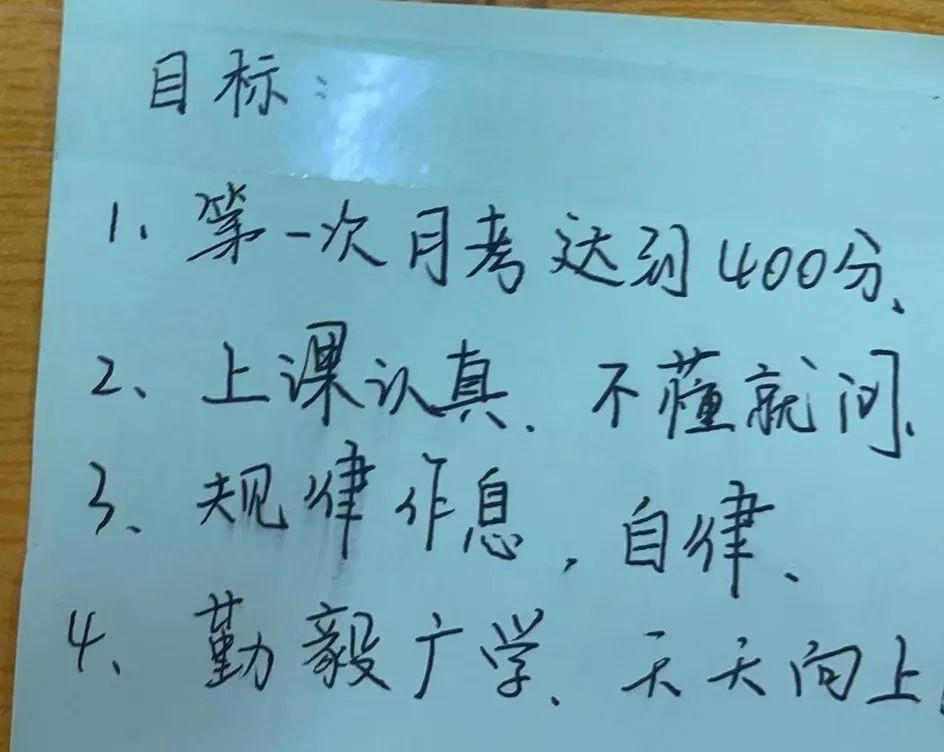 目标：
1、第一次月考达到400分、
2、上课认真、不懂就问、
3、规律作息，自律、
4、勤毅广学、天天向上